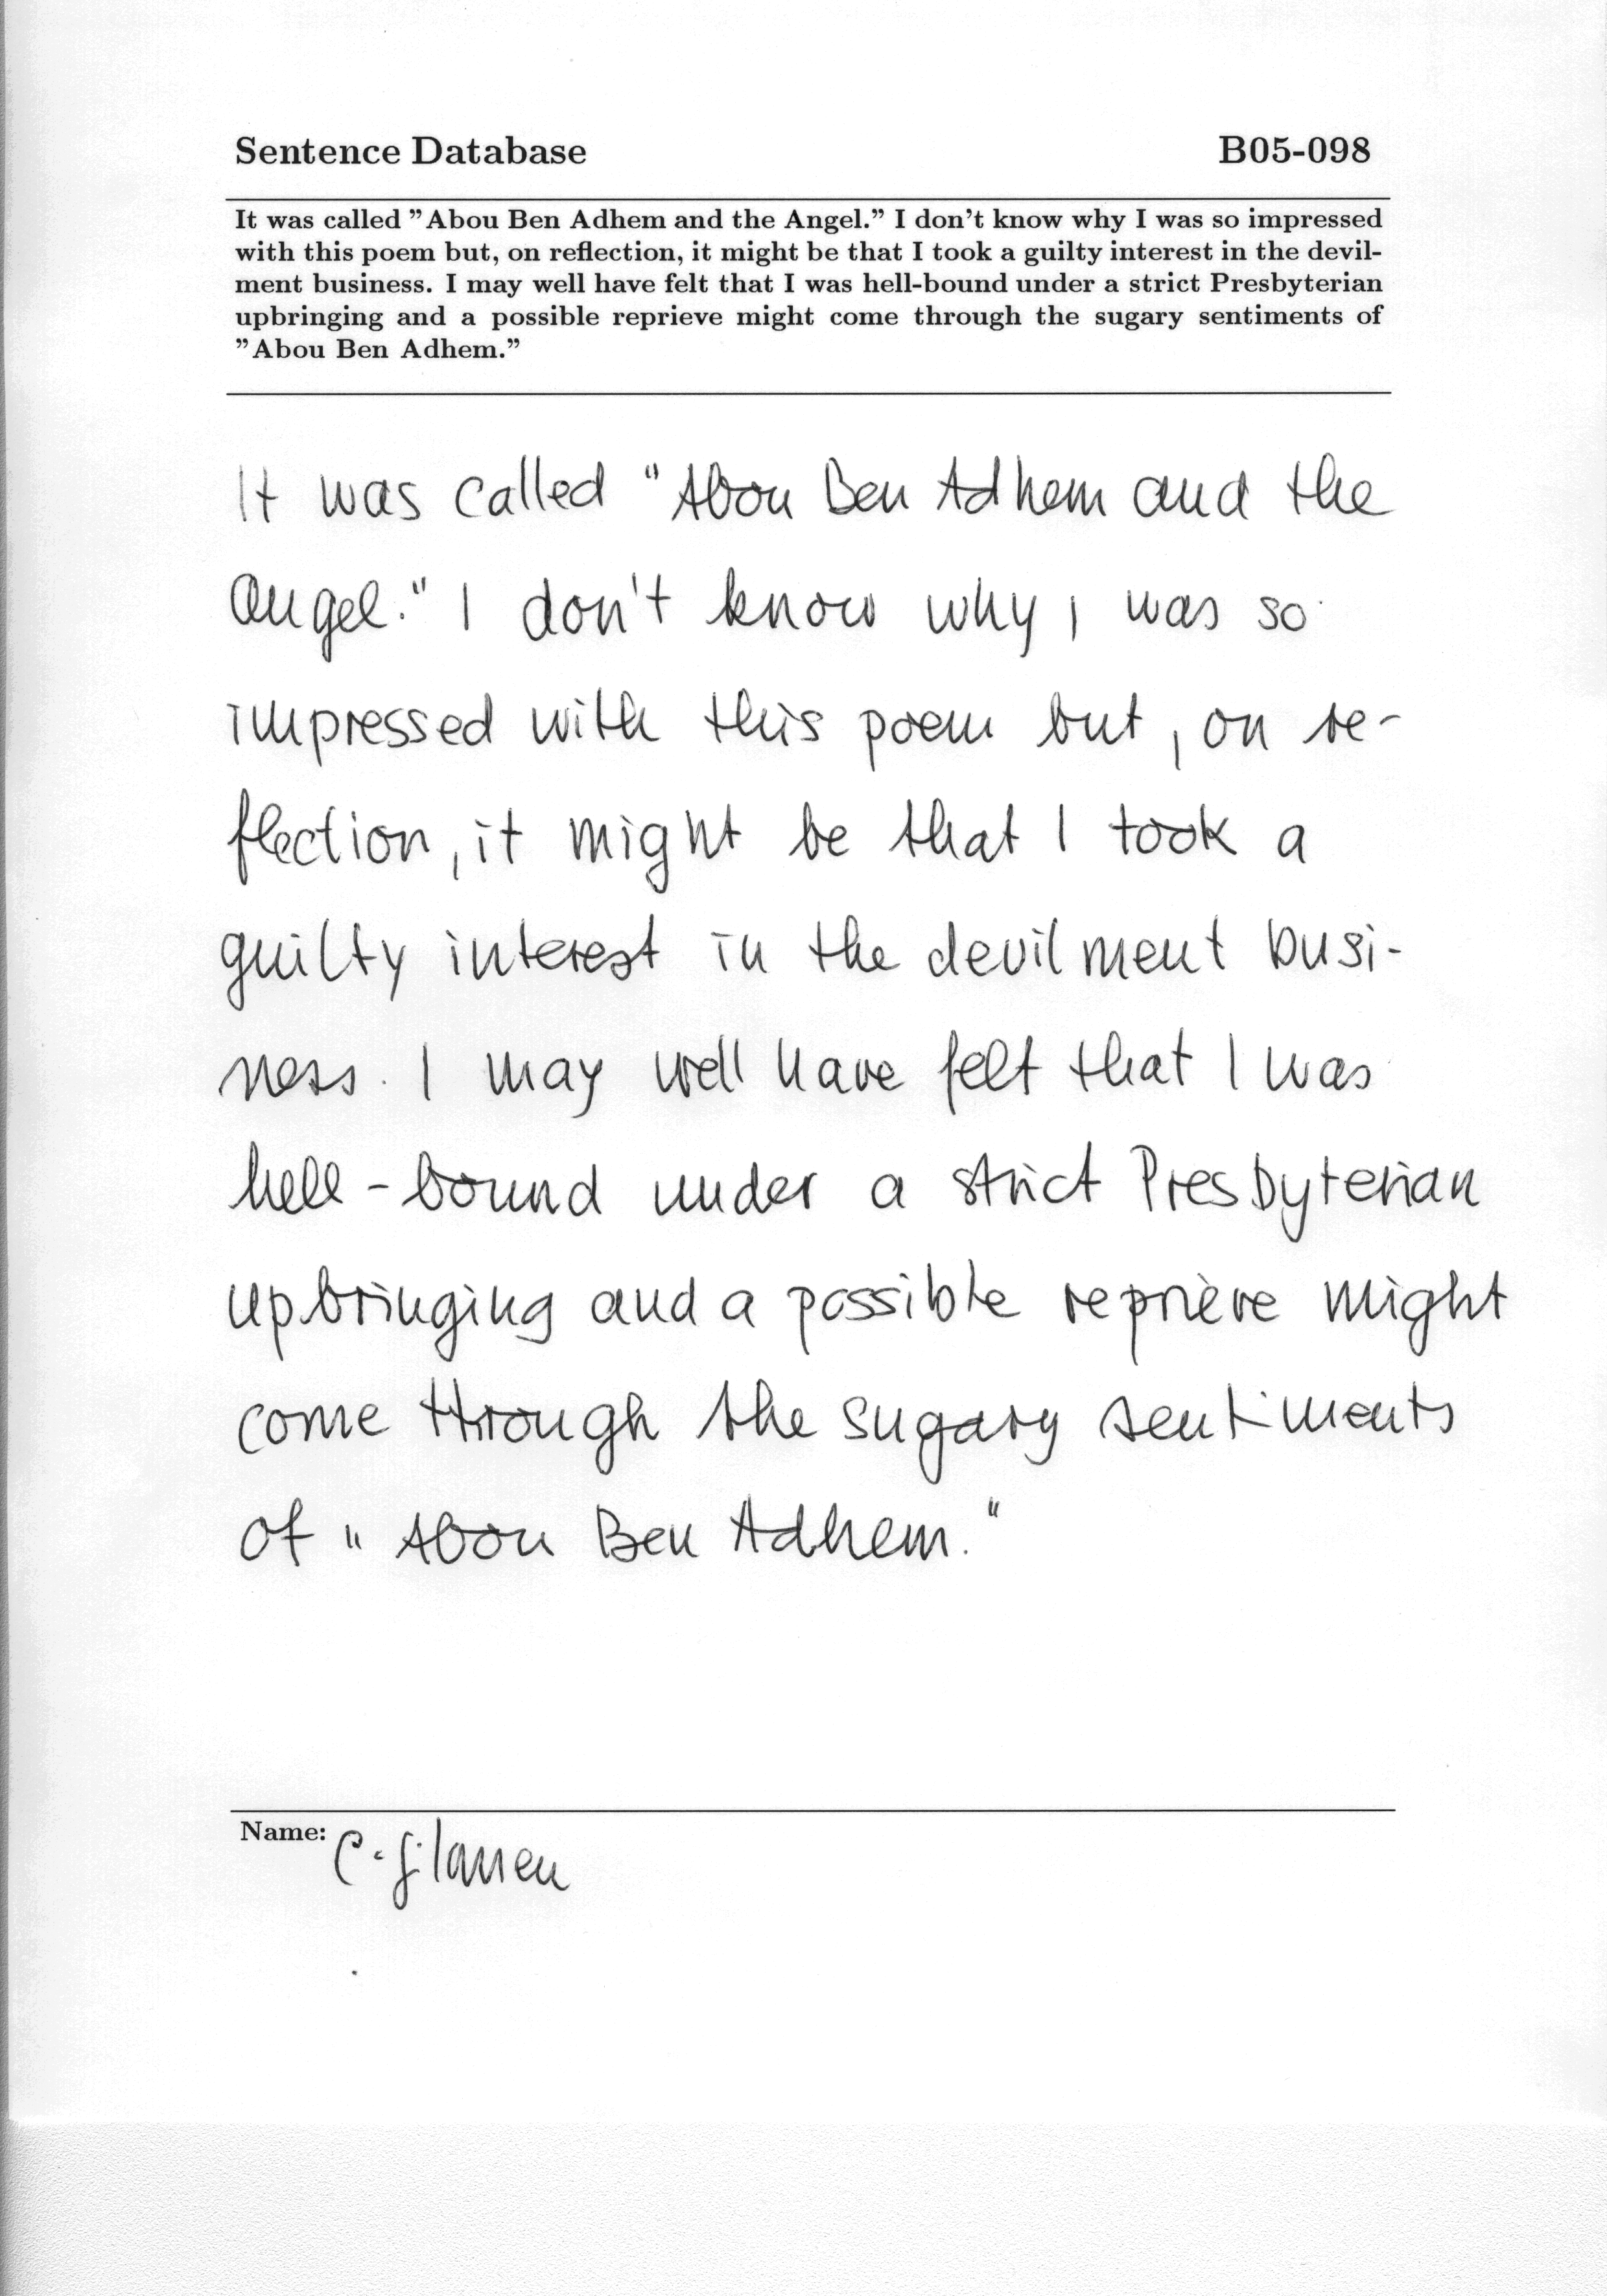 Sentence Database B05-098
It was called ”Abou Ben Adhem and the Angel.” I don’t know why I was so impressed
with this poem but, on reflection, it might be that I took a guilty interest in the devil-
ment business. I may well have felt that I was hell-bound under a strict Presbyterian
upbringing and a possible reprieve might come through the sugary sentiments of
”Abou Ben Adhem.”
It was called "Abou Ben Adhem and the
Angel." I don't know why I was so
impressed with this poem but, on re-
flection, it might be that I took a
guilty interest in the devilment busi-
ness. I may well have felt that I was
hell-bound under a strict Presbyterian
upbringing and a possible reprieve might
come through the sugary sentiments
of "Abou Ben Adhem."
Name: C.